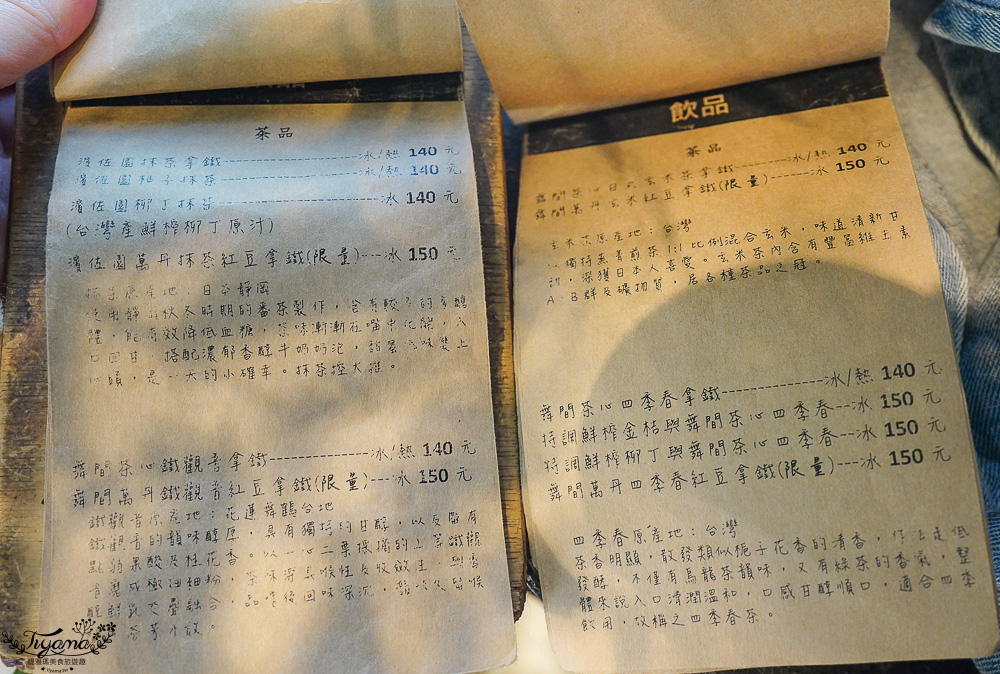 茶品
濱佐園抹茶拿鐵-----------------冰/熱 140 元
濱佐園柚子抹茶-----------------冰/熱 140 元
濱佐園柳丁抹茶--------------------冰 140 元
(台灣產鮮榨柳丁原汁)
濱佐園萬丹抹茶紅豆拿鐵(限量)---冰 150 元
抹茶原產地:日本靜岡
秋冬時期的番茶製作,含有較多的多醣
體,能有效降低血糖,茶味漸漸在嘴中化開,入
口回甘,搭配濃郁香醇牛奶奶泡,
是一大的小確幸。抹茶控大推。
舞間茶心鐵觀音拿鐵--------------冰/熱 140 元
舞間萬丹鐵觀音紅豆拿鐵(限量)---冰 150 元
鐵觀音原產地:花蓮舞鶴台地
鐵觀音的韻味醇厚,具有獨特的甘醇,以及帶有
點蘋果酸及桂花香。以一心二葉採摘的上等鐵觀
音磨成極細粉,
飲品
茶品
舞間茶心日式玄米茶拿鐵--------冰/熱 140 元
舞間萬丹玄米紅豆拿鐵(限量)------冰 150 元
玄米茶原產地:台灣
獨特蒸菁煎茶1:1比例混合玄米,味道清新甘
甜,深獲日本人喜愛。玄米茶內含有豐富維生素
A、B群及礦物質,居各種茶品之冠。
舞間茶心四季春拿鐵--------------冰/熱 140 元
特調鮮榨金桔與舞間茶心四季春---冰 150 元
特調鮮榨柳丁與舞間茶心四季春---冰 150 元
舞間萬丹四季春紅豆拿鐵(限量)----冰 150 元
四季春原產地:台灣
茶香明顯,散發類似梔子花香的清香,作法走低
發酵,不僅有烏龍茶韻味,又有綠茶的香氣,整
體來說入口清潤溫和,口感甘醇順口,適合四季
飲用,故稱之四季春茶。
Tiyama